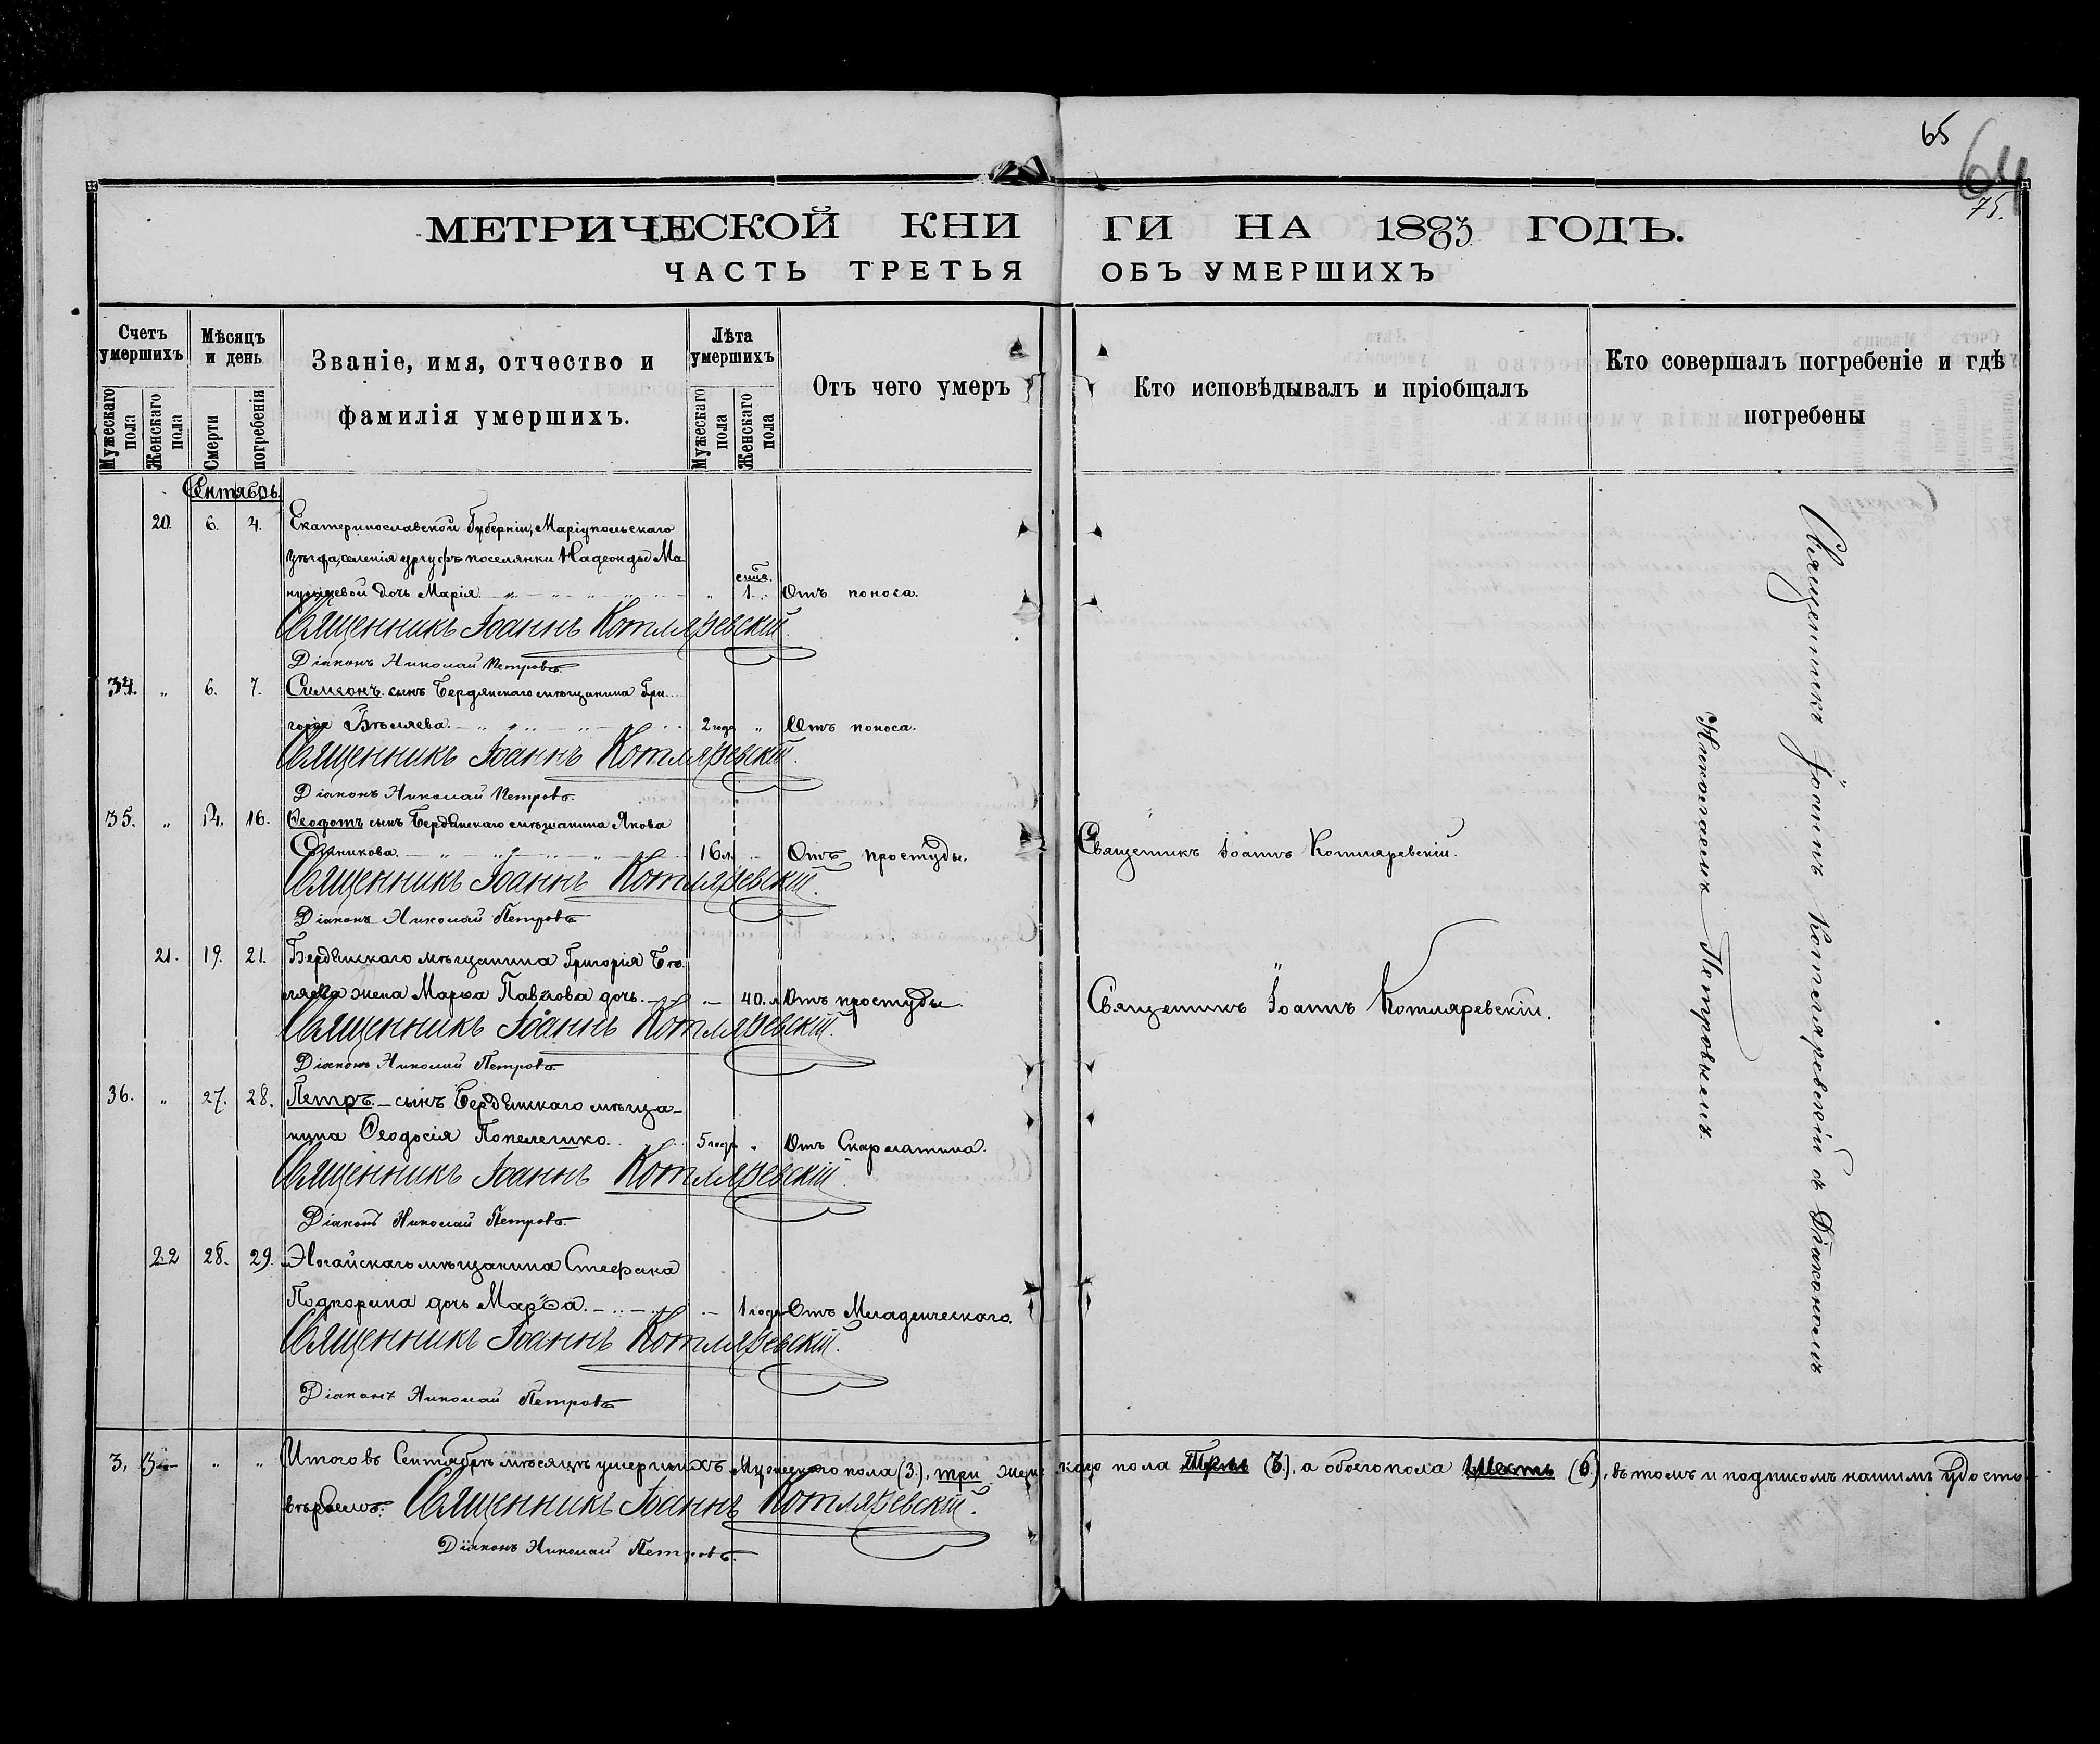 65
64
75.
МЕТРИЧЕСКОЙ КНИ ГИ НА 1883 ГОДЪ.
ЧАСТЬ ТРЕТЬЯ ОБЪ УМЕРШИХЪ
Счетъ умершихъ
Мужескаго пола
Женскаго пола
Мѣсяцъ и день
Смерти
погребенія
Званіе, имя, отчество и
фамилія умершихъ.
Лѣта умершихъ
Мужескаго пола
Женскаго пола
Отъ чего умеръ
Кто исповѣдывалъ и пріобщалъ
Кто совершалъ погребеніе и гдѣ
погребены
Сентябрь.
20. 6. 7. Екатеринославской Губерніи, Маріупольскаго
уѣзда, селенія Ургуфъ поселянки Надежды Ма
дочь Марія 1. Отъ поноса.
Священникъ Іоаннъ Котляревскій.
Діаконъ Николай Петровъ.
34. „ 6. 7. Симеонъ сынъ Бердянскаго мѣщанина Гри
горія Бѣляева. 2 года „ Отъ поноса.
Священникъ Іоаннъ Котляревскій.
Діаконъ Николай Петровъ.
35. „ 14. 16. Ѳеодотъ сынъ Бердянскаго мѣщанина Якова
16 л. Отъ простуды. Священникъ Іоаннъ Котляревскій.
Священникъ Іоаннъ Котляревскій.
Діаконъ Николай Петровъ
21. 19. 21. Бердянскаго мѣщанина Григорія Бѣ
ляева жена Марѳа Павлова дочь. 40. л Отъ простуды. Священникъ Іоаннъ Котляревскій.
Священникъ Іоаннъ Котляревскій.
Діаконъ Николай Петровъ
36. „ 27. 28. Петръ. – сынъ Бердянскаго мѣща–
нина Ѳеодосія Попелешко. 5 годъ „ Отъ Скарлатина.
Священникъ Іоаннъ Котляревскій.
Діаконъ Николай Петровъ
22 28. 29. Ногайскаго мѣщанина Стефана
Подпорина дочь Марѳа. 1 года Отъ Младенческаго.
Священникъ Іоаннъ Котляревскій.
Діаконъ Николай Петровъ
Священникъ Іоаннъ Котляревскій съ Діакономъ
Николаемъ Петровымъ.
3. 3 „ „ Итого въ Сентябрѣ мѣсяцѣ умершихъ Мужескаго пола (3.), три женс каго пола Трехъ (3.), а обоего пола Шесть (6.), въ томъ и подписомъ нашимъ удосто–
вѣряемъ. Священникъ Іоаннъ Котляревскій.
Діаконъ Николай Петровъ.